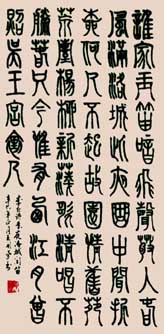 誰家玉笛暗飛聲散入春
風滿洛城此夜曲中聞折
柳何人不起故園情舊苑
荒臺楊柳新菱歌清唱不
勝春只今惟有西江月曾
照吳王宮裏人
李白詩春夜洛城聞笛